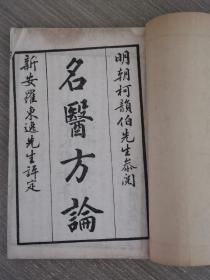 明朝柯韻伯先生叅閱
名醫方論
新安羅東逸先生評定